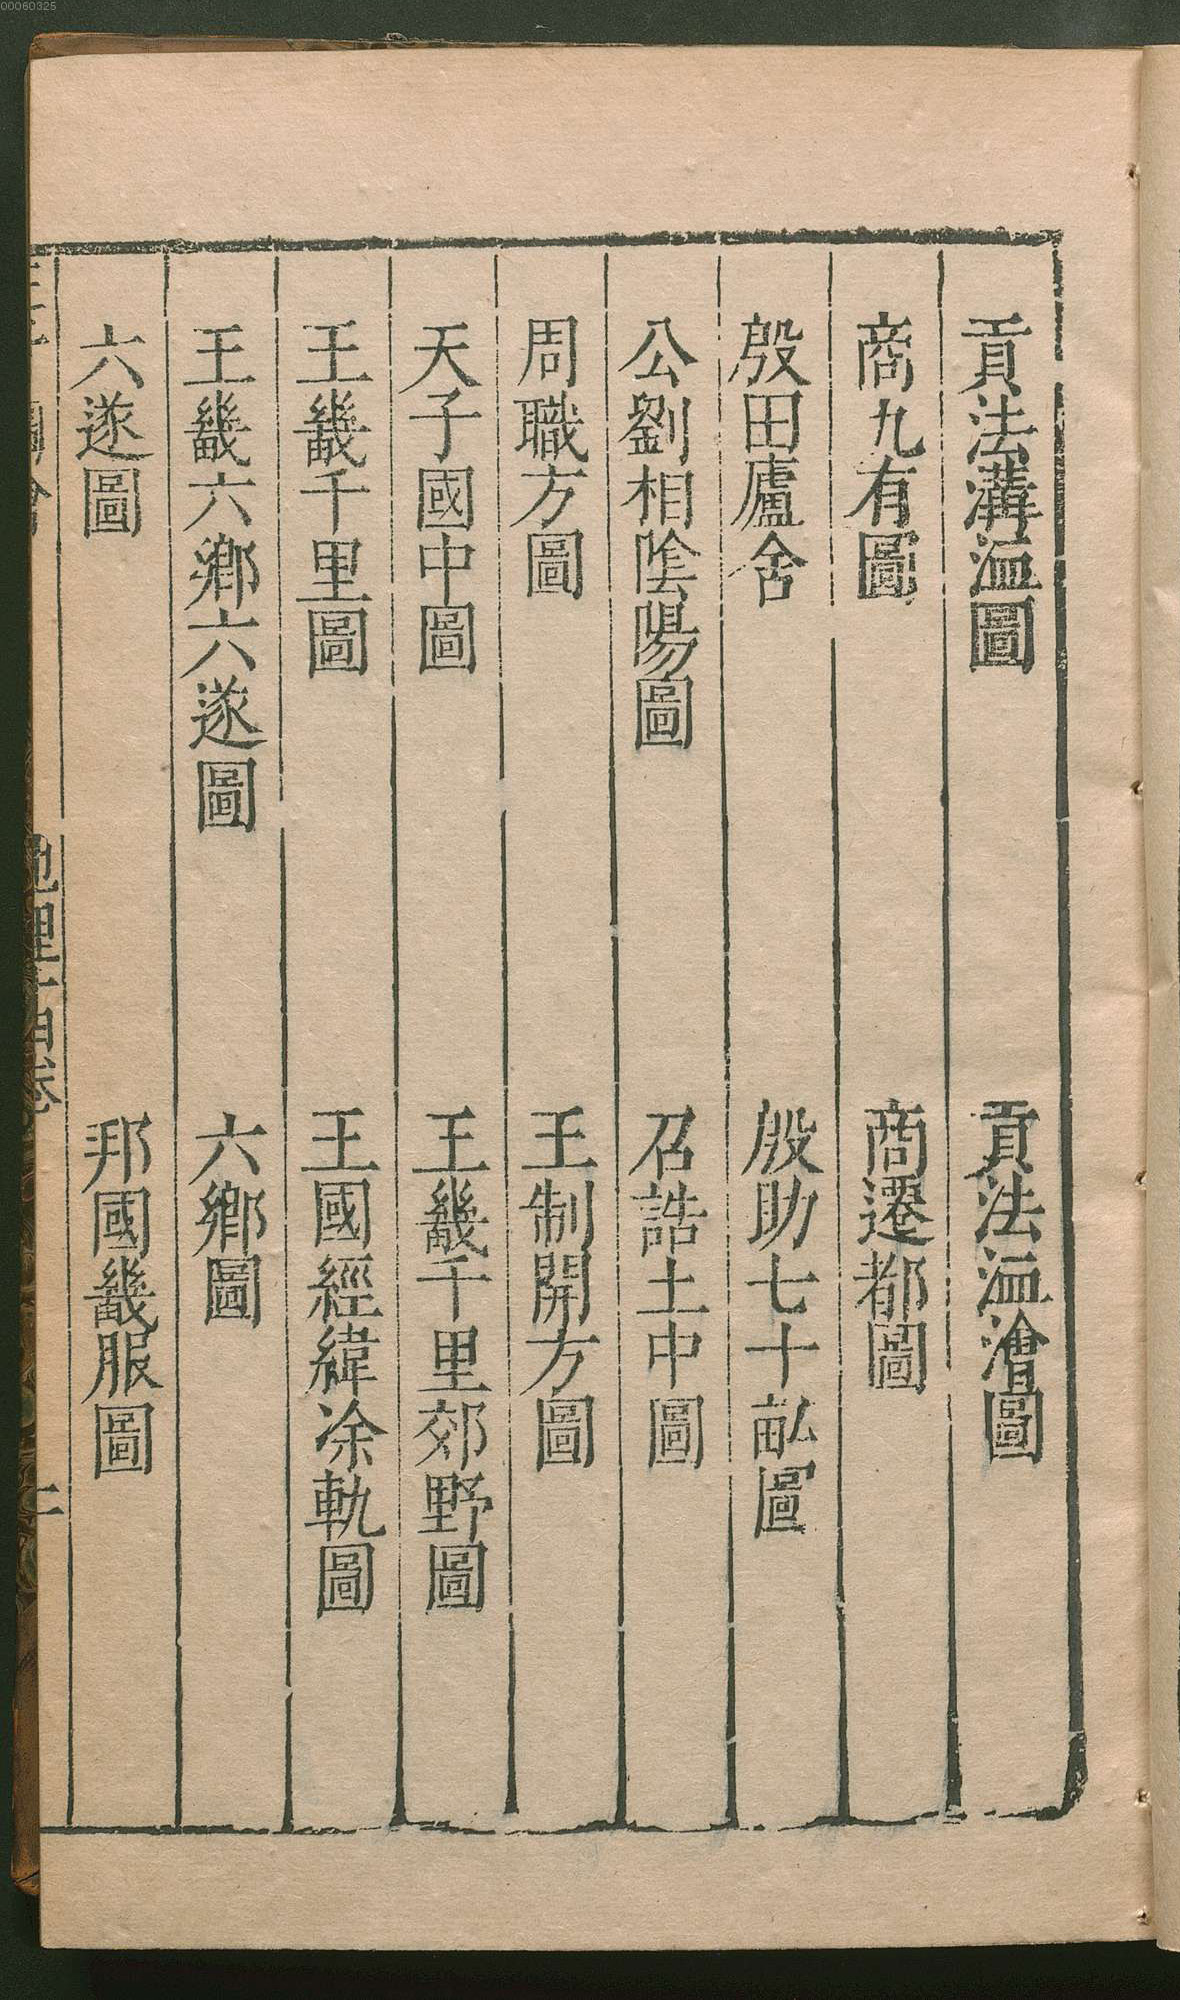 00060325
貢法溝洫圖　貢法洫澮圖
商九有圖　商遷都圖
殷田廬舍　殷助七十畝圖
公劉相陰陽圖　召誥土中圖
周職方圖　王制開方圖
天子國中圖　王畿千里郊野圖
王畿千里圖　王國經緯涂軌圖
王畿六鄉六遂圖　六鄉圖
六遂圖　邦國畿服圖
地理　目卷